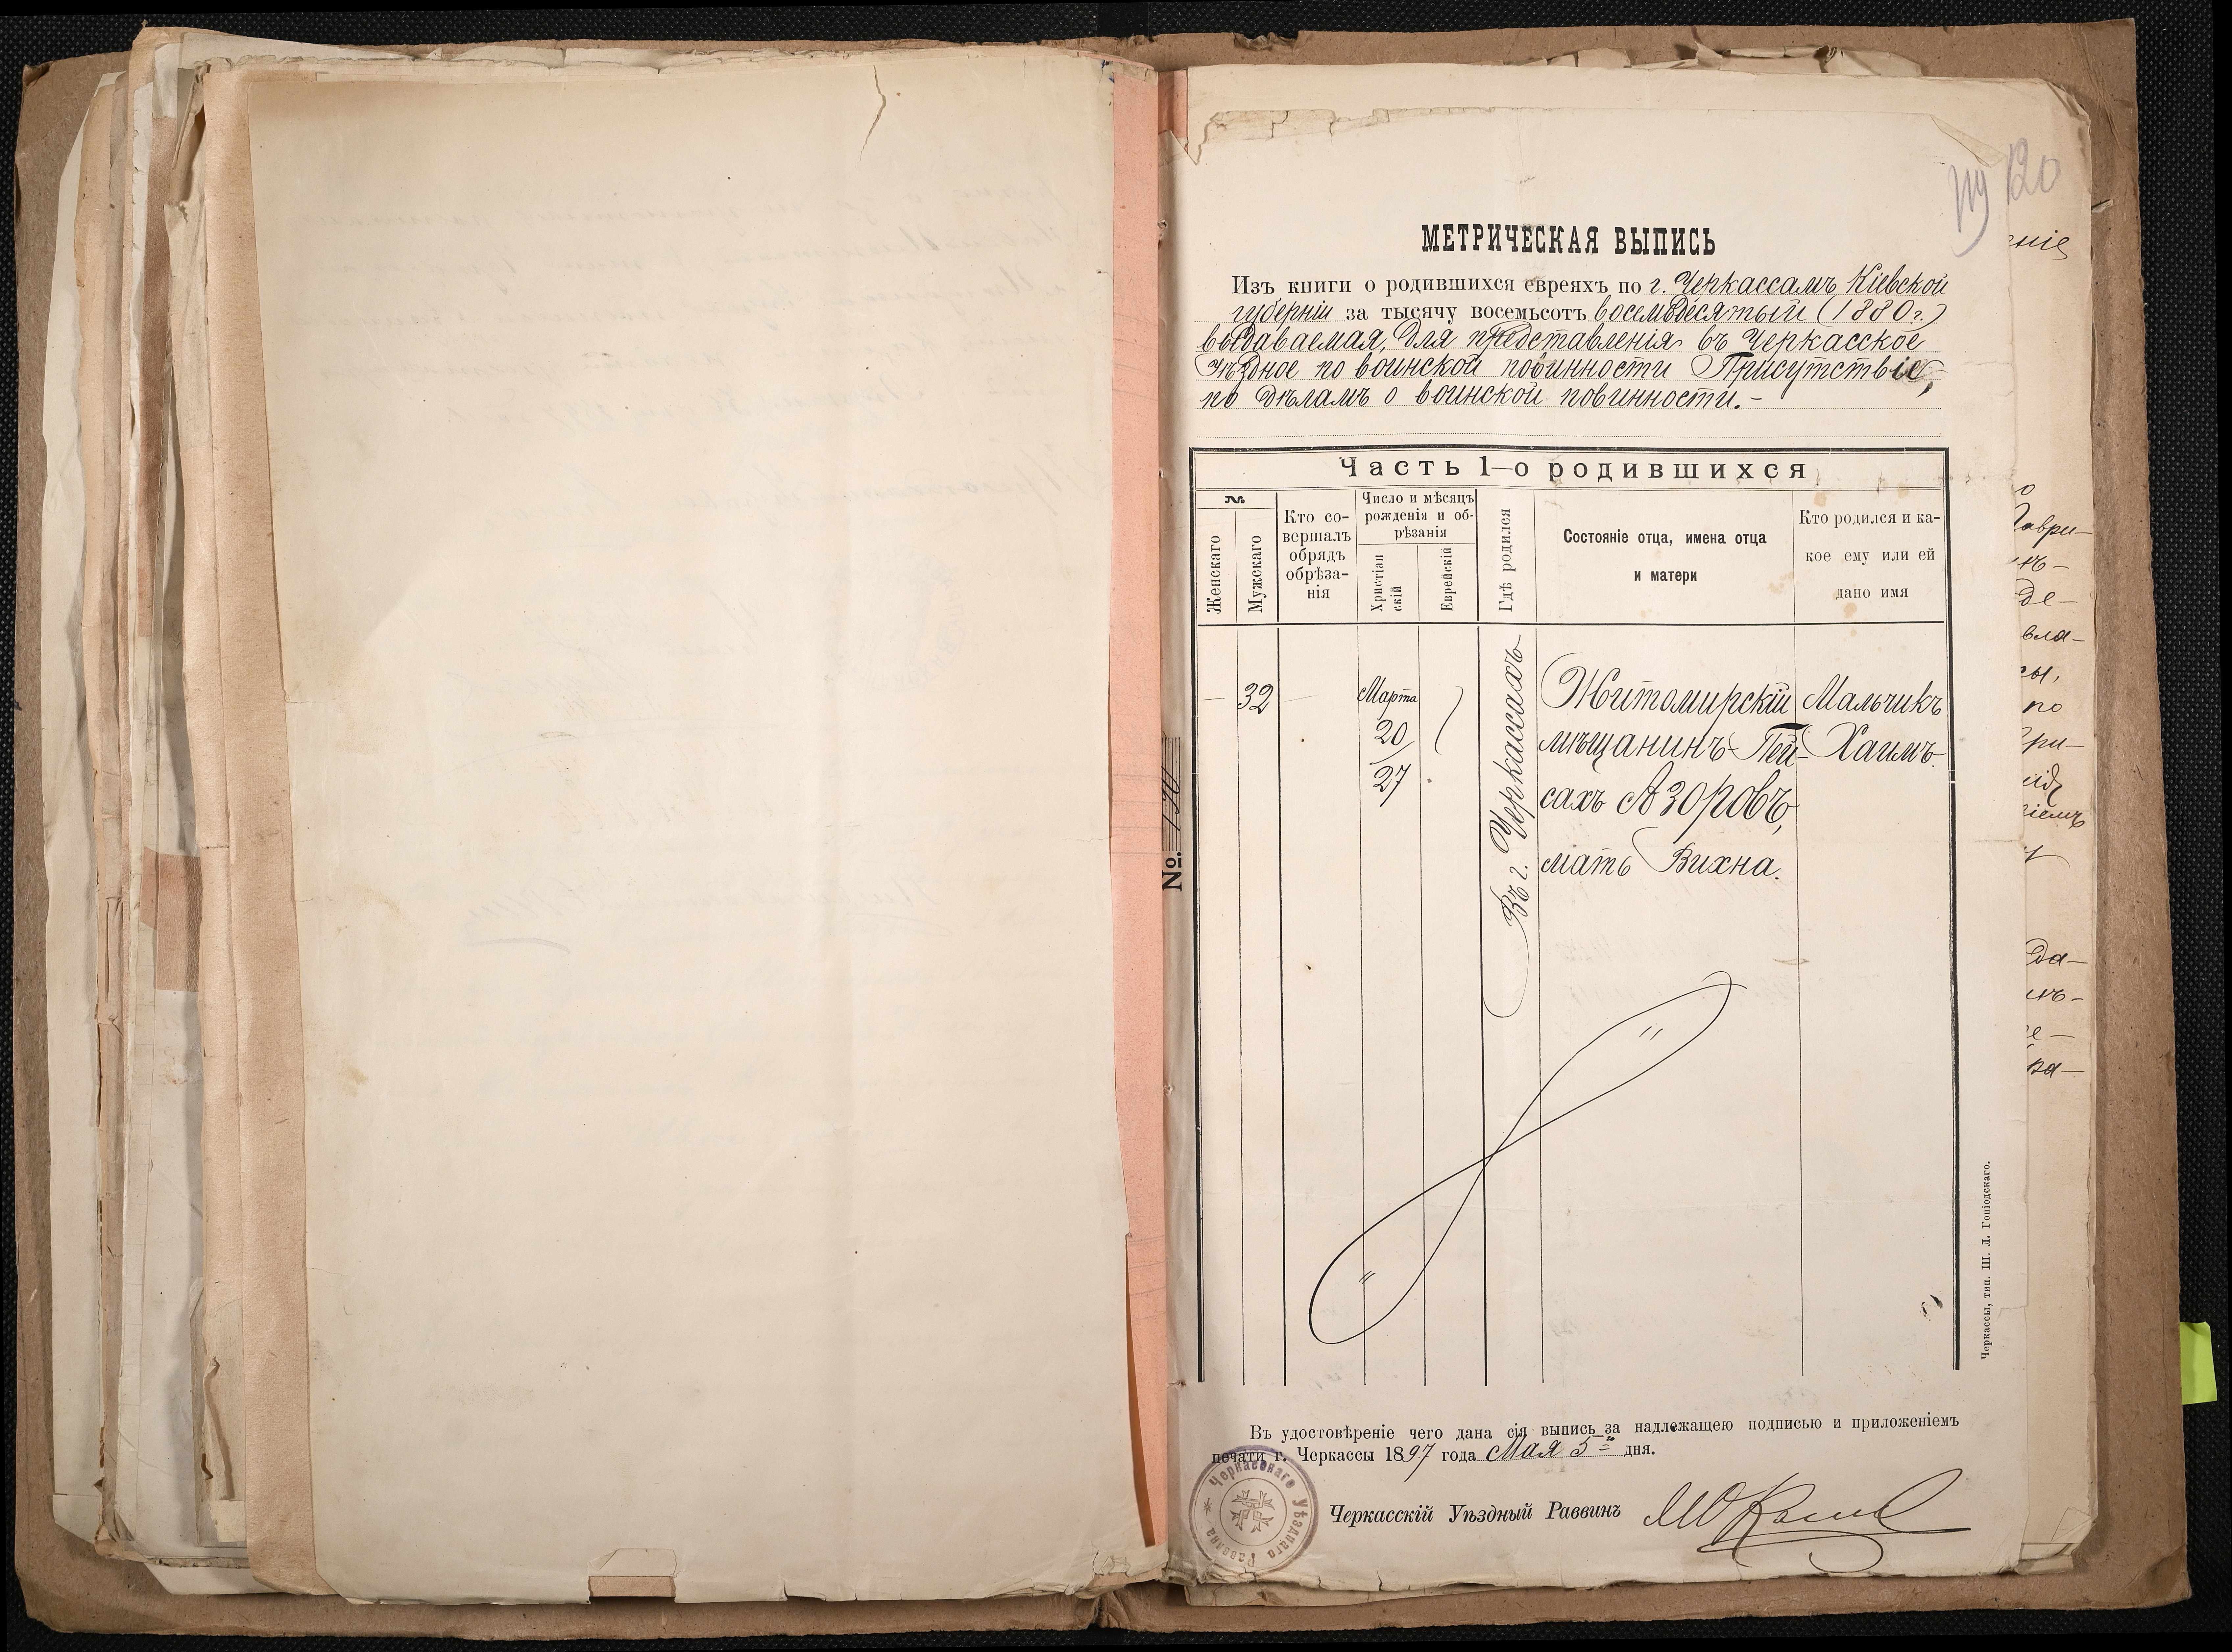 120
МЕТРИЧЕСКАЯ ВЫПИСЬ
Изъ книги о родившихся евреяхъ по г. Черкассамъ Кіевской
губерніи за тысячу восемьсотъ восемьдесятый (1880 г.)
выдаваемая, для представленія въ Черкасское
Уѣздное по воинской повинности Присутствіе,
по дѣламъ о воинской повинности.-
Часть 1-о родившихся
№
Женскаго
Мужскаго
Кто со-
вершалъ
обрядъ
обрѣза-
нія
Число и мѣсяцъ
рожденія и об-
рѣзанія
Христіан
скій
Еврейскій
Гдѣ родился
Состояніе отца, имена отца
и матери
Кто родился и ка-
кое ему или ей
дано имя
— 32 — Марта
20
27
Въ г. Черкассахъ
Житомирскій
мѣщанинъ Пей-
сахъ Азоровъ,
мать Вихна.
Мальчикъ
Хаимъ.
№. 120
Въ удостовѣреніе чего дана сія выпись за надлежащею подписью и приложеніемъ
печати г. Черкассы 1897 года Мая 5 дня.
Черкасскій Уѣздный Раввинъ
Черкасскаго Уѣзднаго Раввина
Черкассы, тип. Ш. Л. Гоніодскаго.
еніе
Гаври-
де-
вла-
сы,
по
при-
да-
ка-